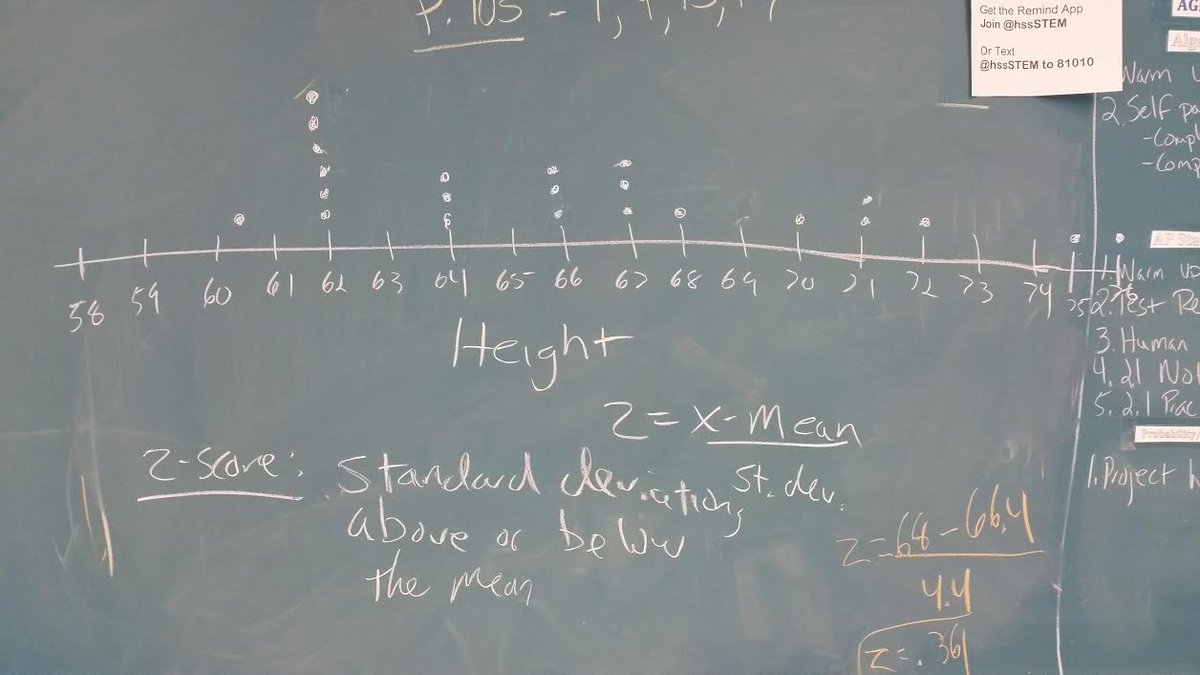 P. 105 - 1, 9, 15, 17
Get the Remind App
Join @hssSTEM
Or Text
@hssSTEM to 81010
AG
Alg
Warm U
2. Self pa
-Compl
-Comp
58 59 60 61 62 63 64 65 66 67 68 69 70 71 72 73 74 75 76
Height
Z = X - Mean
St. dev.
Z-Score: Standard deviations
above or below
the mean
z = 68 - 66.4
4.4
z = .36
AP Sta
1. Warm up
2. Test Re
3. Human
4. 2.1 Not
5. 2.1 Prac
Probability
1. Project